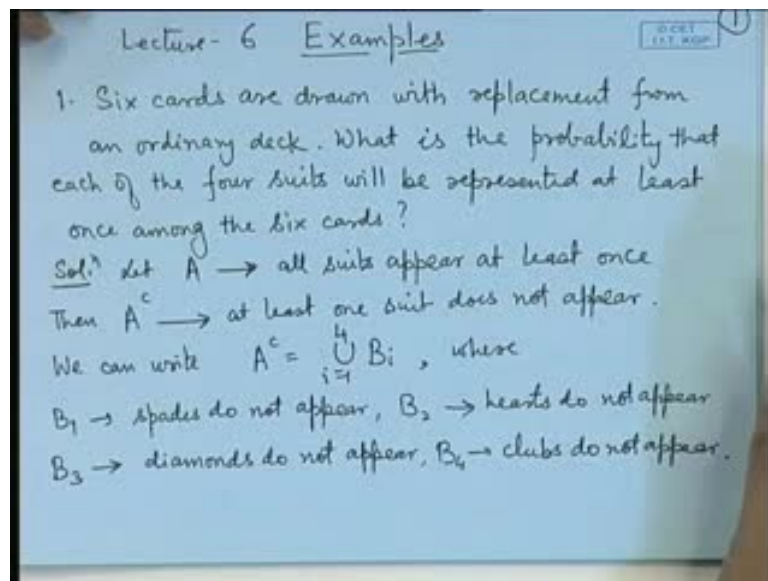 Lecture - 6 Examples
1
O CET
I.I.T. KGP
1. Six cards are drawn with replacement from
an ordinary deck. What is the probability that
each of the four suits will be represented at least
once among the six cards?
Solⁿ Let A → all suits appear at least once
Then Aᶜ → at least one suit does not appear.
We can write Aᶜ = ⋃_{i=1}^{4} Bᵢ , where
B₁ → spades do not appear, B₂ → hearts do not appear
B₃ → diamonds do not appear, B₄ → clubs do not appear.